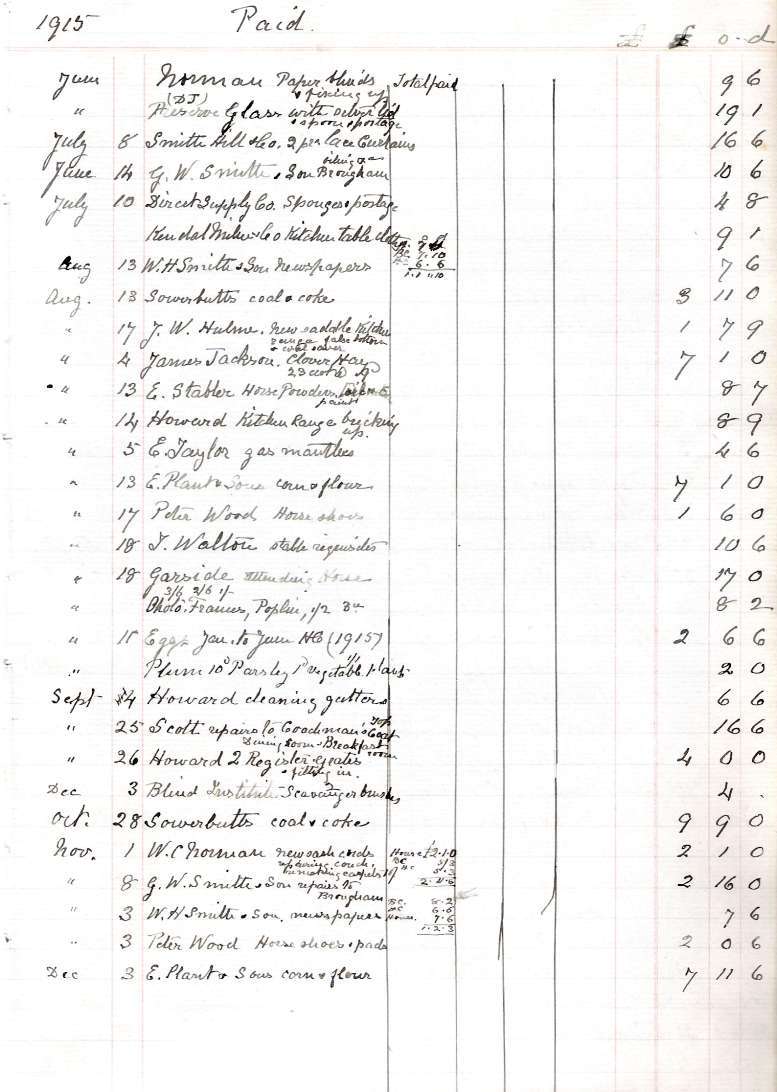 1915 Paid.
£ £ s - d
June Norman Paper blinds Total paid 9 6
& fixing up
(DJ)
" Preserve Glass with silver lid 19 1
& spoon & postage
July 8 Smith Hill & Co. 2 prs lace Curtains 16 6
June 14 G. W. Smith & Son Brougham 10 6
July 10 Direct Supply Co. Sponges & postage 4 8
Kendal Milne & Co Kitchen table cloths 9 1
Aug 13 W. H Smith & Son Newspapers 7 6
7.10
6.6
1.1.10
Aug. 13 Sowerbutts coal & coke 3 11 0
" 17 J. W. Hulme. new saddle Kitchen 1 7 9
range false bottom
" 4 James Jackson. Clover Hay 7 1 0
23 cwt @
" 13 E. Stabler Horse Powders 8 7
paint
" 14 Howard Kitchen Range bricking 8 9
up.
" 5 E. Taylor gas mantles 4 6
" 13 E. Plant & Sons corn & flour 7 1 0
" 17 Peter Wood Horse shoes 1 6 0
" 18 J. Walton stable requisites 10 6
" 18 Garside attending Horse 17 0
3/6 2/6 1/-
" Photo. Frames, Poplin, 8 2
" 15 Eggs Jan. to June HC (1915) 2 6 6
" Plum 10d Parsley 1d vegetable plants 2 0
1/1
Sept 14 Howard cleaning gutters 6 6
" 25 Scott repairs to Coachman's Top Coat 16 6
Dining room & Breakfast room
" 26 Howard 2 Register grates 4 0 0
& fitting in.
Dec 3 Blind Institute Scavenger brushes 4 .
Oct. 28 Sowerbutts coal & coke 9 9 0
Nov. 1 W. C Norman new sash cords House £2.1.0 2 1 0
repairing couch BC. 5/3
remaking carpets HC 5.3
2.11.6
" 8 G. W. Smith & Son repairs to 2 16 0
Brougham
" 3 W. H Smith & Son. newspapers 7 6
BC. 8.2
HC 6.6
House. 7.6
1.2.3
" 3 Peter Wood Horse shoes & pads 2 0 6
Dec 3 E. Plant & Sons corn & flour 7 11 6